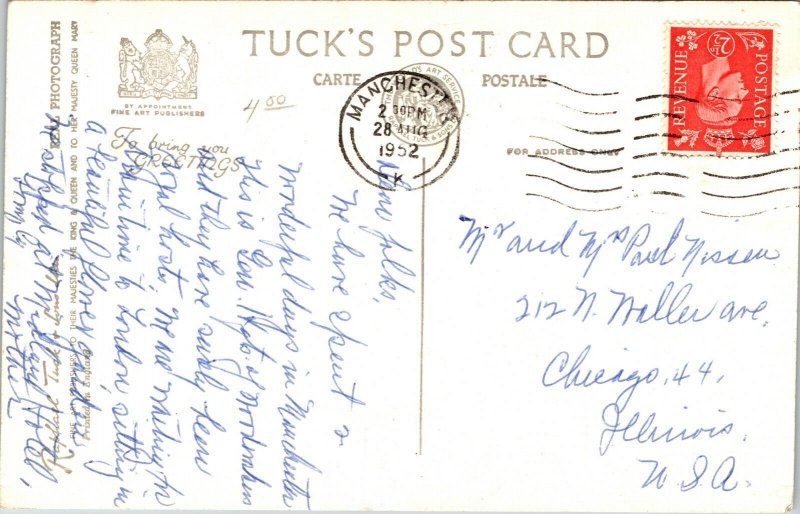 TUCK'S POST CARD
CARTE POSTALE
BY APPOINTMENT
FINE ART PUBLISHERS
4 00
To bring you
GREETINGS
REAL PHOTOGRAPH
FINE ART PUBLISHERS TO THEIR MAJESTIES THE KING & QUEEN AND TO HER MAJESTY QUEEN MARY
Raphael Tuck & Sons Ltd
Printed in England
MANCHESTER
2 30PM
28 AUG
1952
K
FOR ADDRESS ONLY
REVENUE
POSTAGE
2½D
Dear folks,
We have spent 2
wonderful days in Manchester
This is Gen. Hdqts. of
and they have surely been
royal hosts. We are waiting for
train time to London sitting in
a beautiful flower garden
We stopped at Midland Hotel,
Mother
Mr and Mrs Paul Nissen
212 N. Waller ave,
Chicago, 44,
Illinois.
U.S.A.